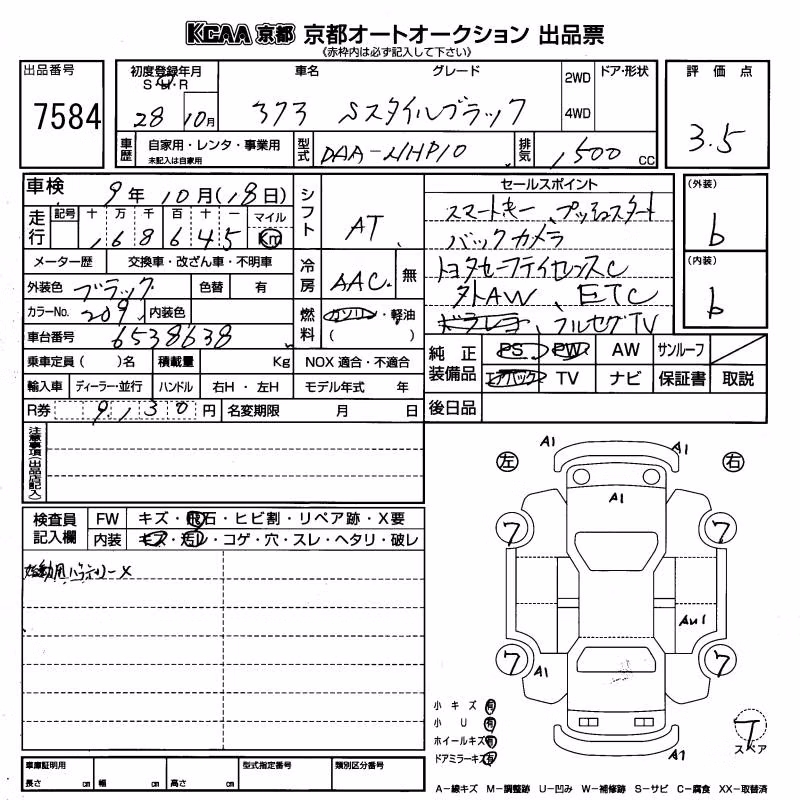 KCAA 京都 京都オートオークション 出品票
《赤枠内は必ず記入して下さい》
出品番号
7584
初度登録年月
S・H・R
28 10月
車名
グレード
Sスタイルブラック
2WD
4WD
ドア・形状
評価点
3.5
車歴
自家用・レンタ・事業用
未記入は自家用
型式
DAA-NHP10
排気
1500 CC
車検
9年10月(18日)
走行
記号 十 万 千 百 十 一 マイル
168645 Km
シフト
AT
セールスポイント
スマートキー、プッシュスタート
バックカメラ
トヨタセーフティセンスC
外AW、ETC
フルセグTV
(外装)
b
(内装)
b
メーター歴 交換車・改ざん車・不明車
外装色 ブラック 色替 有
冷房
AAC 無
カラーNo. 209 内装色
燃料
ガソリン・軽油
( )
車台番号 6538638
純正装備品
PS PW AW サンルーフ
エアバック TV ナビ 保証書 取説
乗車定員( )名 積載量 Kg NOX 適合・不適合
輸入車 ディーラー・並行 ハンドル 右H・左H モデル年式 年
後日品
R券 9,130円 名変期限 月 日
注意事項(出品店記入)
検査員記入欄
FW キズ・飛石・ヒビ割・リペア跡・X要
内装 キズ・汚レ・コゲ・穴・スレ・ヘタリ・破レ
始動用バッテリーX
左 右
A1 A1
A1
7 7
AU1
7 7
A1
A1
小キズ 有
小U 有
ホイールキズ 有
ドアミラーキズ 有
T
スペア
車庫証明用
長さ cm 幅 cm 高さ cm
型式指定番号
類別区分番号
A−線キズ M−調整跡 U−凹み W−補修跡 S−サビ C−腐食 XX−取替済